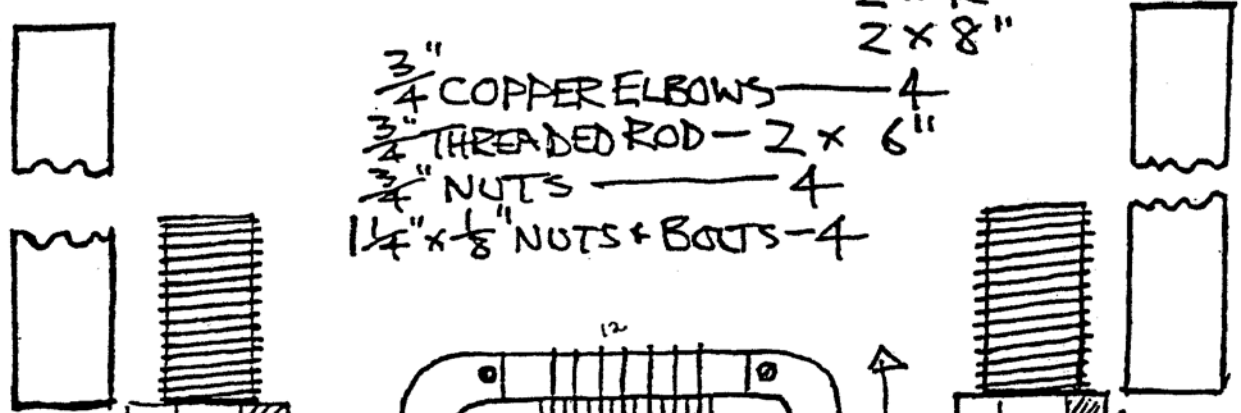 2 x 8"
3/4" COPPER ELBOWS — 4
3/4" THREADED ROD — 2 x 6"
3/4" NUTS — 4
1 1/4" x 1/8" NUTS & BOLTS — 4
12